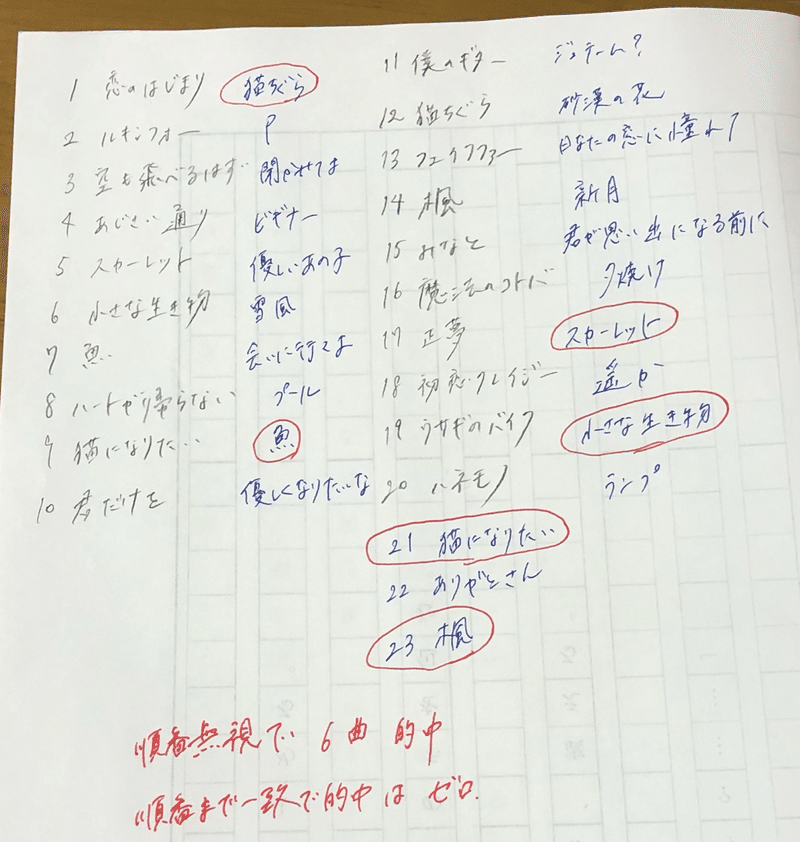 1 恋のはじまり 猫ちぐら
2 ルキンフォー P
3 空も飛べるはず 聞かせてよ
4 あじさい通り ビギナー
5 スカーレット 優しいあの子
6 小さな生き物 雪風
7 魚 会いに行くよ
8 ハートが帰らない プール
9 猫になりたい 魚
10 君だけを 優しくなりたいな
11 僕のギター ジュテーム?
12 猫ちぐら 砂漠の花
13 フェイクファー 日なたの恋に憧れて
14 楓 新月
15 みなと 君が思い出になる前に
16 魔法のコトバ 夕焼け
17 正夢 スカーレット
18 初恋クレイジー 遥か
19 ウサギのバイク 小さな生き物
20 ハネモノ ランプ
21 猫になりたい
22 ありがとさん
23 楓
順番無視で 6曲 的中
順番まで一致で的中は ゼロ.